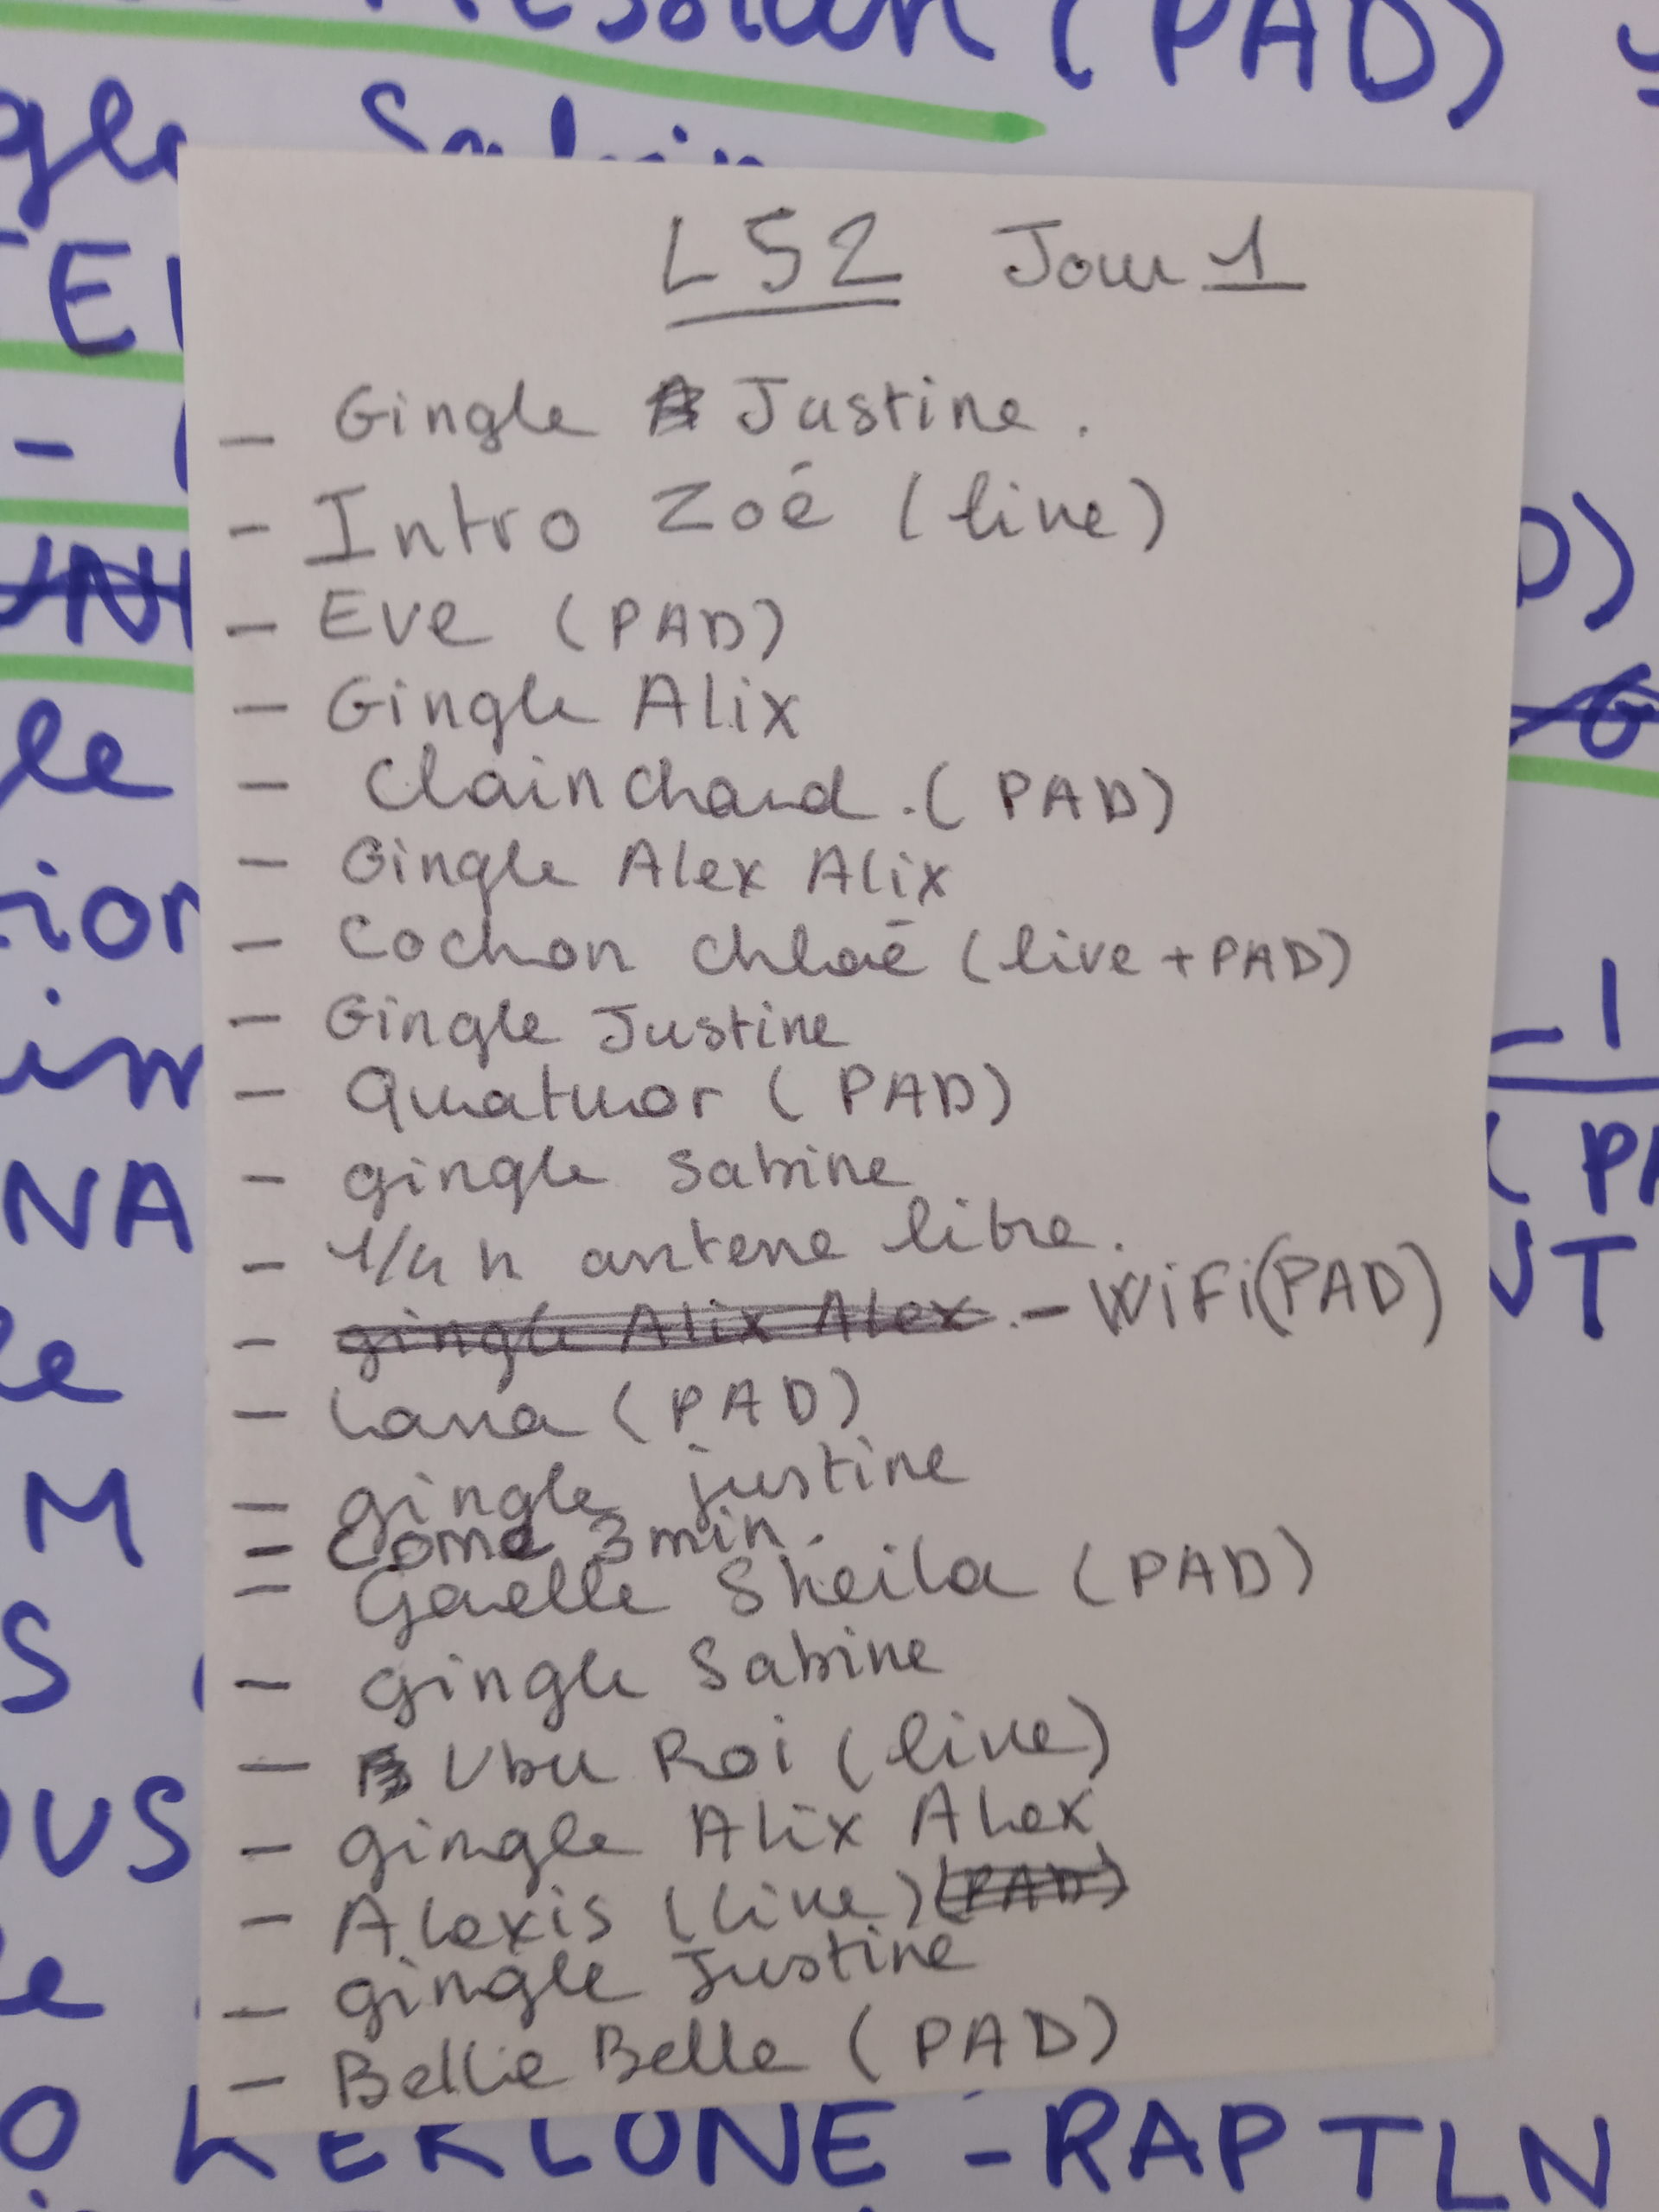 (PAD)
L52 Jour 1
- Gingle Justine.
- Intro Zoé (live)
- Eve (PAD)
- Gingle Alix
- Clainchard.(PAD)
- Gingle Alex Alix
- Cochon Chloé (live + PAD)
- Gingle Justine
- Quatuor (PAD)
- gingle Sabine
- 1/4 h antene libre.
- gingle Alix Alex. - WiFi(PAD)
- Lana (PAD)
- gingle justine
- Come 3 min.
- Gaelle Sheila (PAD)
- gingle Sabine
- Ubu Roi (live)
- gingle Alix Alex
- Alexis (live) (PAD)
- gingle Justine
- Bellie Belle (PAD)
- RAP TLN